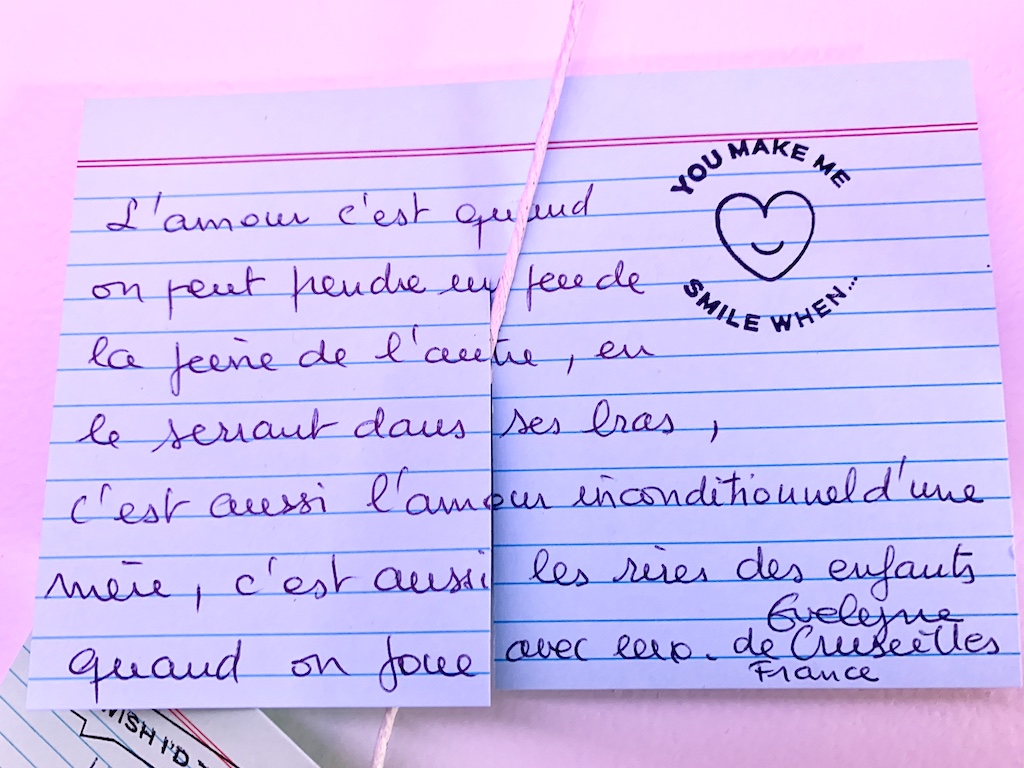 YOU MAKE ME
SMILE WHEN...
L'amour c'est quand
on peut prendre un peu de
la peine de l'autre, en
le serrant dans ses bras,
c'est aussi l'amour inconditionnel d'une
mère, c'est aussi les rires des enfants
quand on joue avec eux.
Evelyne
de Cruseilles
France
WISH I'D